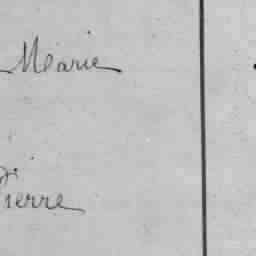 Marie
Pierre